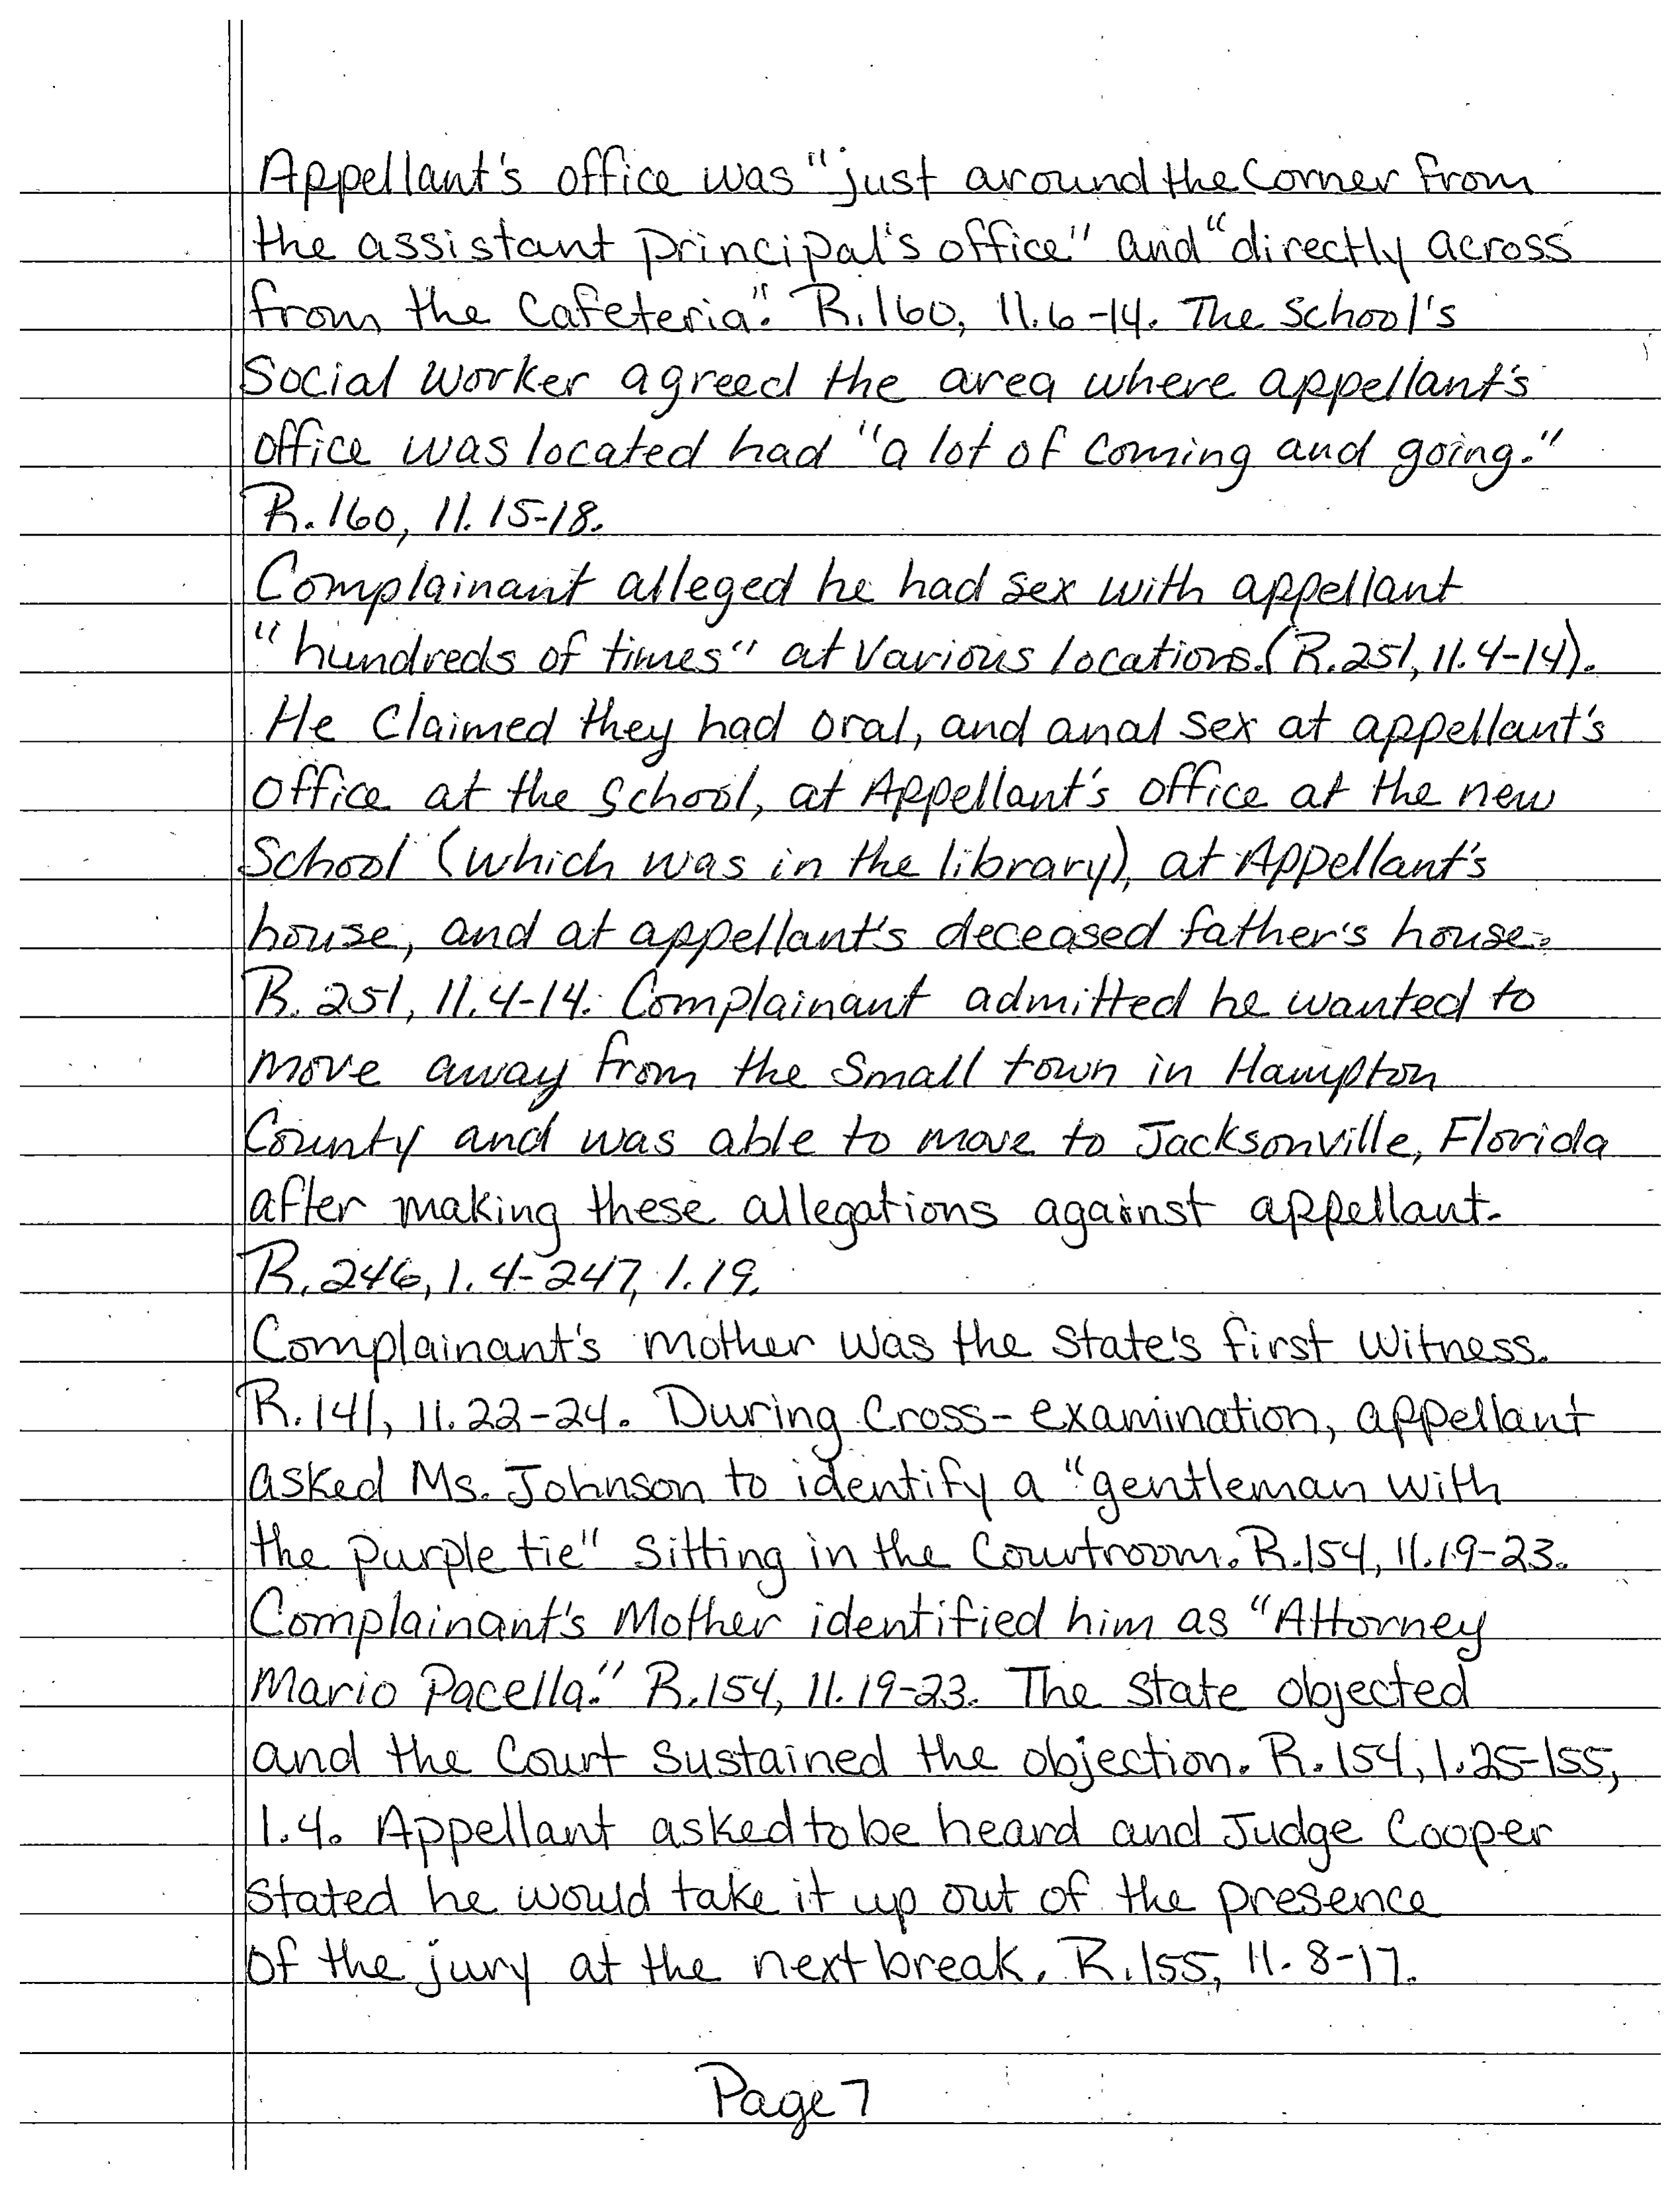 Appellant's office was "just around the Corner from
the assistant principal's office" and "directly across
from the Cafeteria." R.160, ll.6-14. The School's
Social worker agreed the area where appellant's
office was located had "a lot of coming and going."
R.160, ll.15-18.
Complainant alleged he had sex with appellant
"hundreds of times" at various locations.(R.251, ll.4-14).
He Claimed they had oral, and anal sex at appellant's
office at the School, at Appellant's office at the new
School (which was in the library), at Appellant's
house, and at appellant's deceased father's house.
R.251, ll.4-14. Complainant admitted he wanted to
move away from the small town in Hampton
County and was able to move to Jacksonville, Florida
after making these allegations against appellant.
R.246, l.4-247, l.19.
Complainant's mother was the State's first witness.
R.141, ll.22-24. During Cross-examination, appellant
asked Ms. Johnson to identify a "gentleman with
the purple tie" sitting in the Courtroom. R.154, ll.19-23.
Complainant's Mother identified him as "Attorney
Mario Pacella." R.154, ll.19-23. The State objected
and the Court sustained the objection. R.154, l.25-155,
l.4. Appellant asked to be heard and Judge Cooper
stated he would take it up out of the presence
of the jury at the next break. R.155, ll.8-17.
Page 7